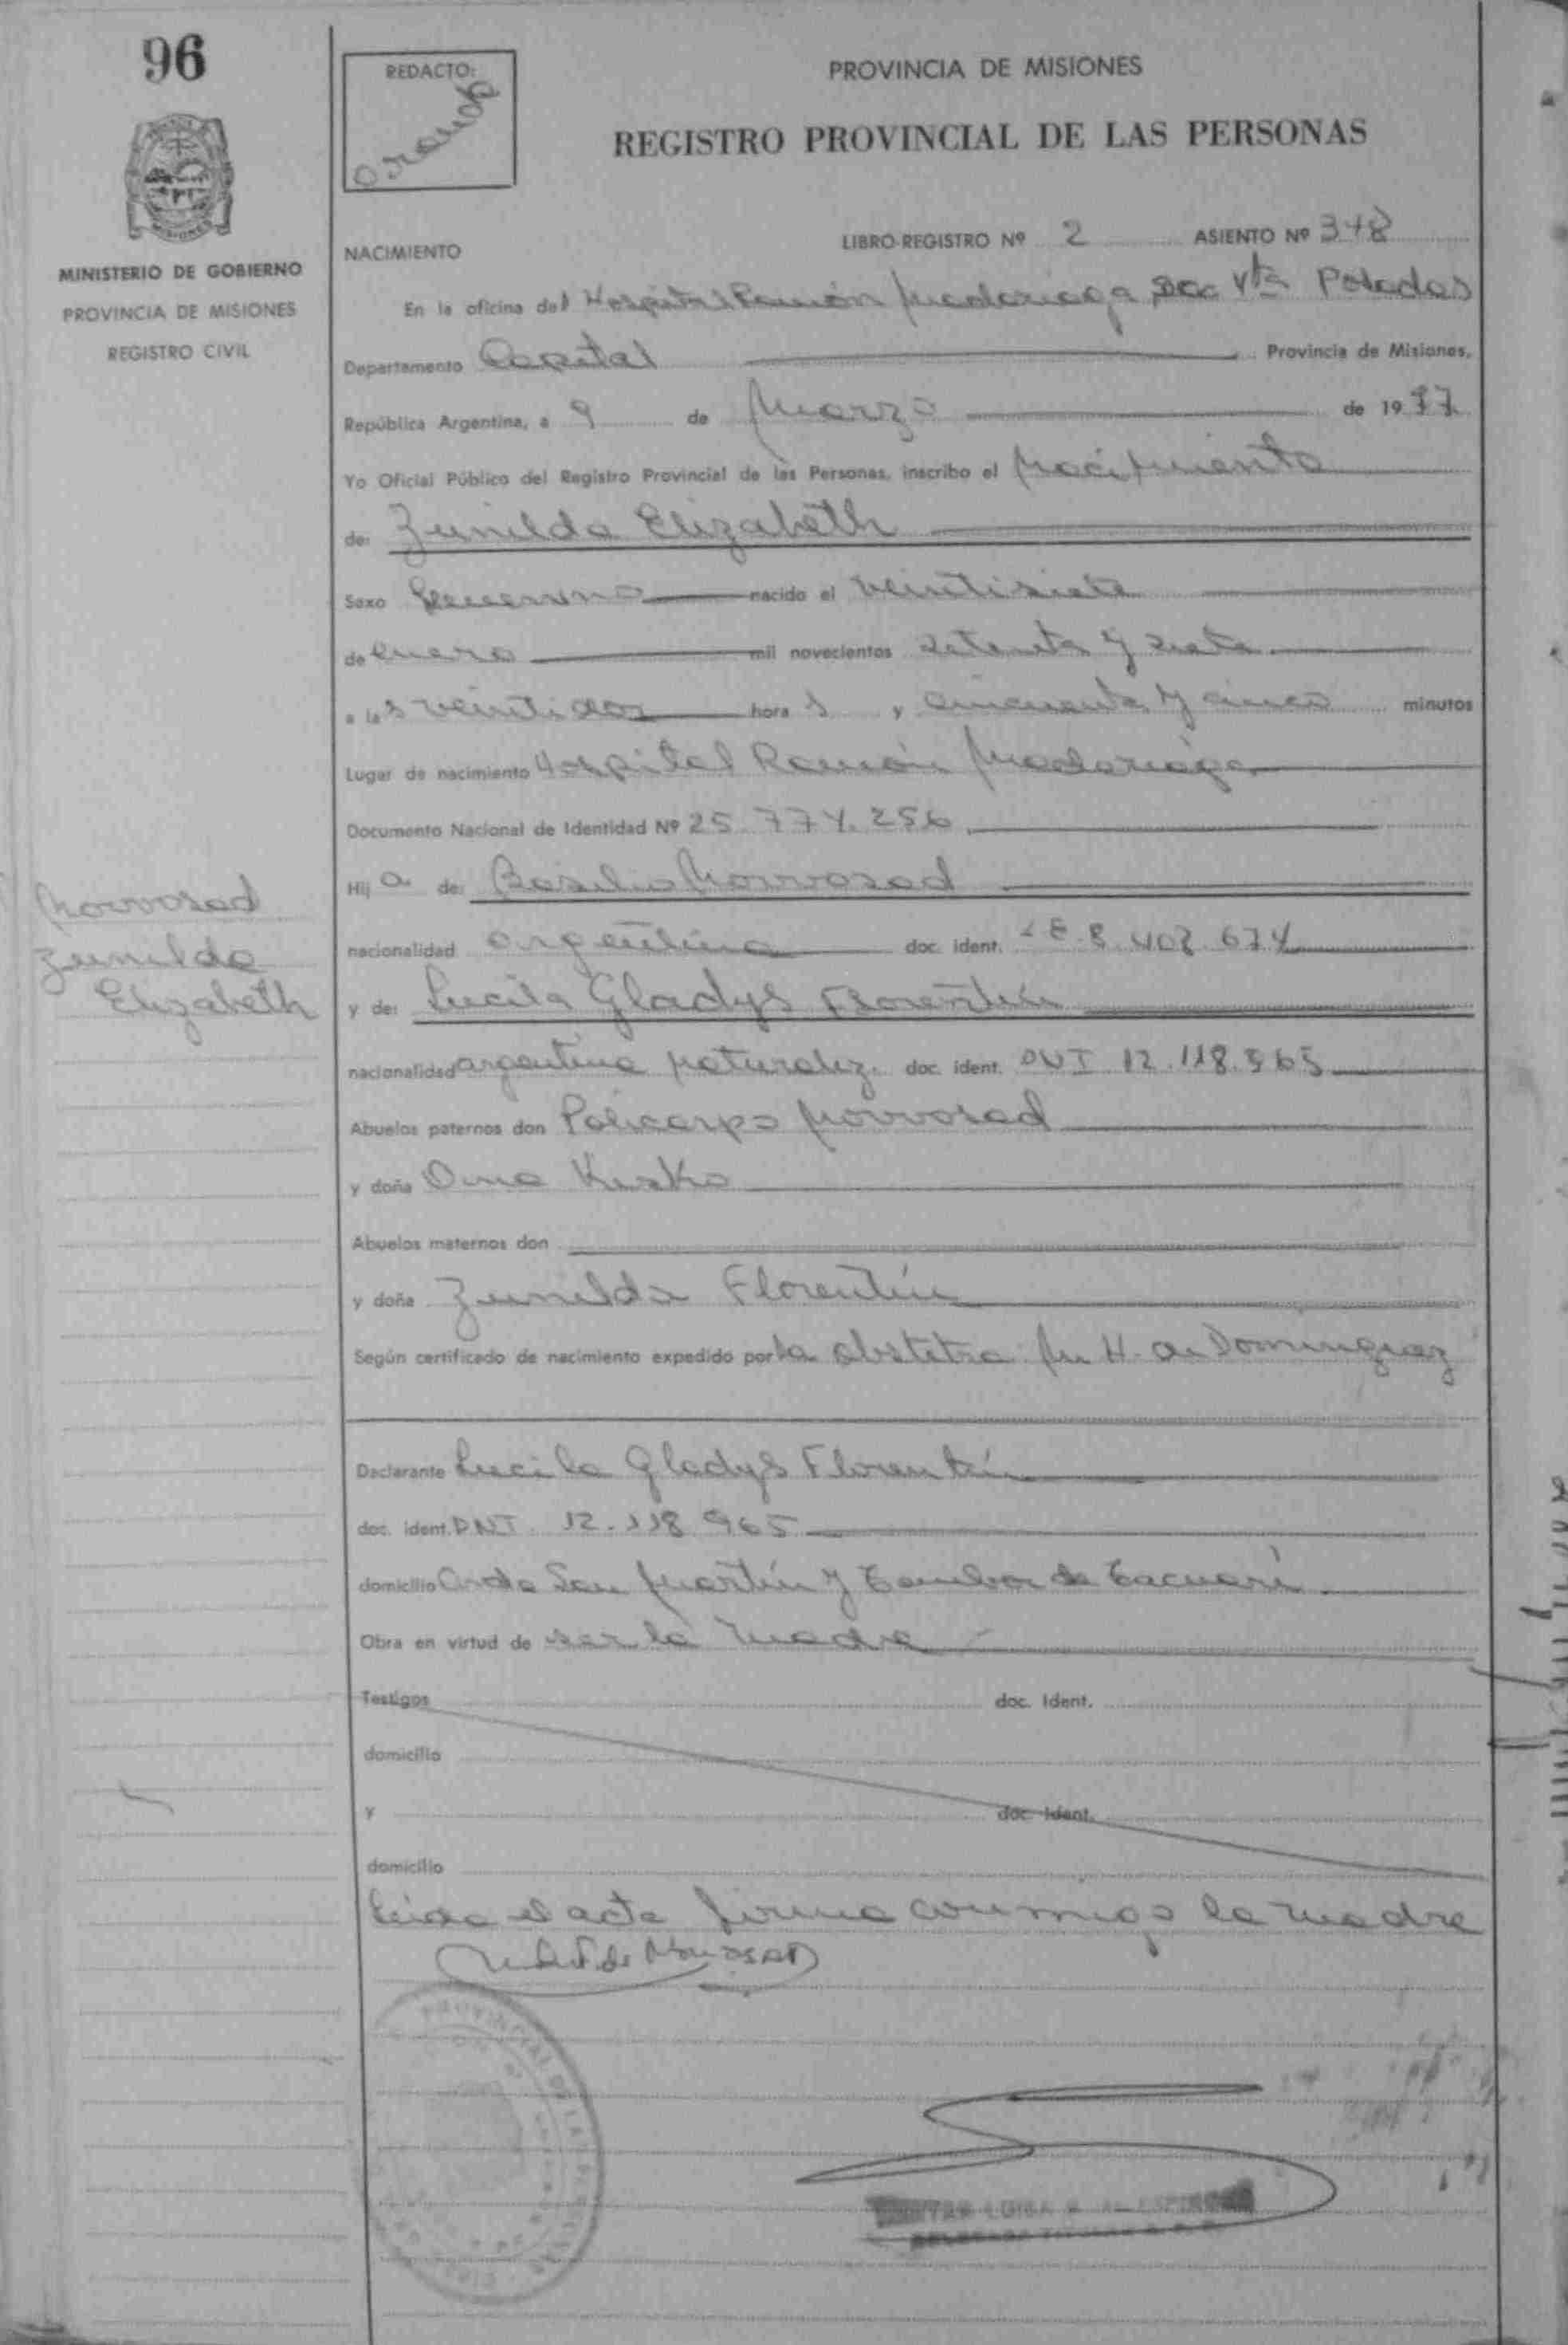 96
REDACTO:
PROVINCIA DE MISIONES
REGISTRO PROVINCIAL DE LAS PERSONAS
MISIONES
MINISTERIO DE GOBIERNO
PROVINCIA DE MISIONES
REGISTRO CIVIL
NACIMIENTO
LIBRO-REGISTRO Nº 2 ASIENTO Nº 348
En la oficina del Hospital Ramón Madariaga Sec Vta Posadas
Departamento Capital Provincia de Misiones,
República Argentina, a 9 de Marzo de 1977
Yo Oficial Público del Registro Provincial de las Personas, inscribo el Nacimiento
de: Zunilda Elizabeth
Sexo femenino nacido el veintisiete
de enero mil novecientos setenta y siete
a las veintidos horas y cincuenta y cinco minutos
Lugar de nacimiento Hospital Ramón Madariaga
Documento Nacional de Identidad Nº 25.774.256
Hija de: Basilio Nowosad
Nowosad
Zunilda
Elizabeth
nacionalidad argentina doc. ident. LE 8.402.674
y de: Lucila Gladys Florentín
nacionalidad argentina naturaliz. doc. ident. DNI 12.118.965
Abuelos paternos don Policarpo Nowosad
y doña Ana Kusko
Abuelos maternos don
y doña Zunilda Florentín
Según certificado de nacimiento expedido por la obstetra M. H. de Dominguez
Declarante Lucila Gladys Florentín
doc. ident. DNI 12.118.965
domicilio Avda San Martín y Tambor de Tacuarí
Obra en virtud de ser la madre
Testigos doc. Ident.
domicilio
y doc. Ident.
domicilio
Leida el acta firma conmigo la madre
PROVINCIAL DE LAS PERSONAS